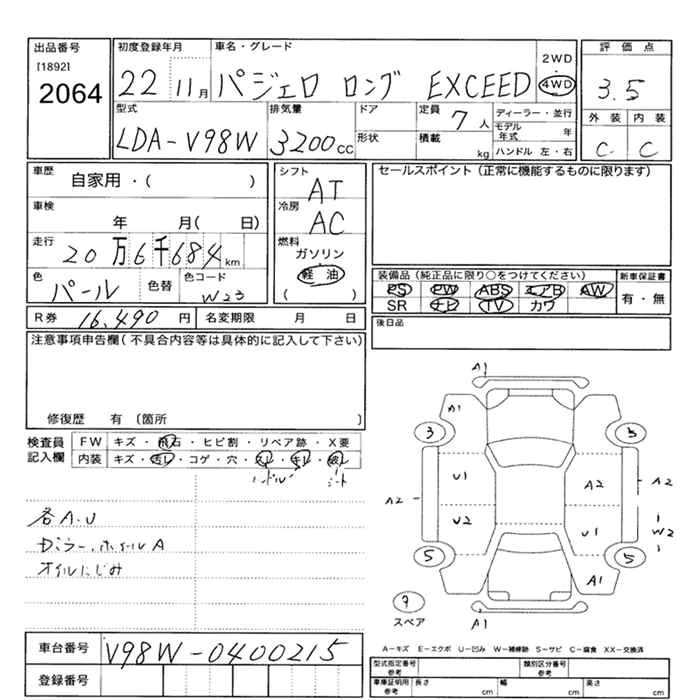 出品番号 初度登録年月 車名・グレード 2WD 評価点
[1892]
2064 22 11月 パジェロ ロング EXCEED 4WD 3.5
型式 排気量 ドア 定員 ディーラー・並行 外装 内装
LDA-V98W 3200cc 形状 7人 モデル年式 年 C C
積載 kg ハンドル 左・右
車歴 自家用・( ) シフト セールスポイント (正常に機能するものに限ります)
AT
車検 年 月( 日) 冷房
AC
走行 20万6千684km 燃料
ガソリン
色 パール 色替 色コード W23 軽油 装備品 (純正品に限り○をつけてください) 新車保証書
( ) PS PW ABS エアB AW 有・無
SR ナビ TV カワ
R券 16,490円 名変期限 月 日 後日品
注意事項申告欄 (不具合内容等は具体的に記入して下さい)
修復歴 有 〔箇所 〕
検査員 FW キズ・飛石・ヒビ割・リペア跡・X要
記入欄 内装 キズ・汚レ・コゲ・穴・スレ・キレ・破レ
ハンドル シート
各A.U
ミラー.ホイルA
オイルにじみ
A1
A1
3 5
U1 A2
A2 A2
U2 U1 W2
5 5
A1
7
スペア A1
A－キズ E－エクボ U－凹ミ W－補修跡 S－サビ C－腐食 XX－交換済
車台番号 V98W-0400215 型式指定番号 参考 類別区分番号 参考
登録番号 車庫証明用 参考 長さ cm 幅 cm 高さ cm